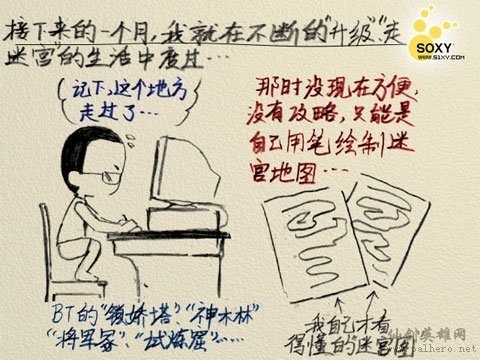 接下来的一个月,我就在不断的"升级""走
迷宫"的生活中度过…
SOXY
www.51XY.com
记下,这个地方
走过了…
那时没现在方便,
没有攻略,只能是
自己用笔绘制迷
宫地图…
BT的"锁妖塔""神木林"
"将军冢""试炼窟"……
我自己才看
得懂的迷宫图
仙剑英雄网
www.palhero.net